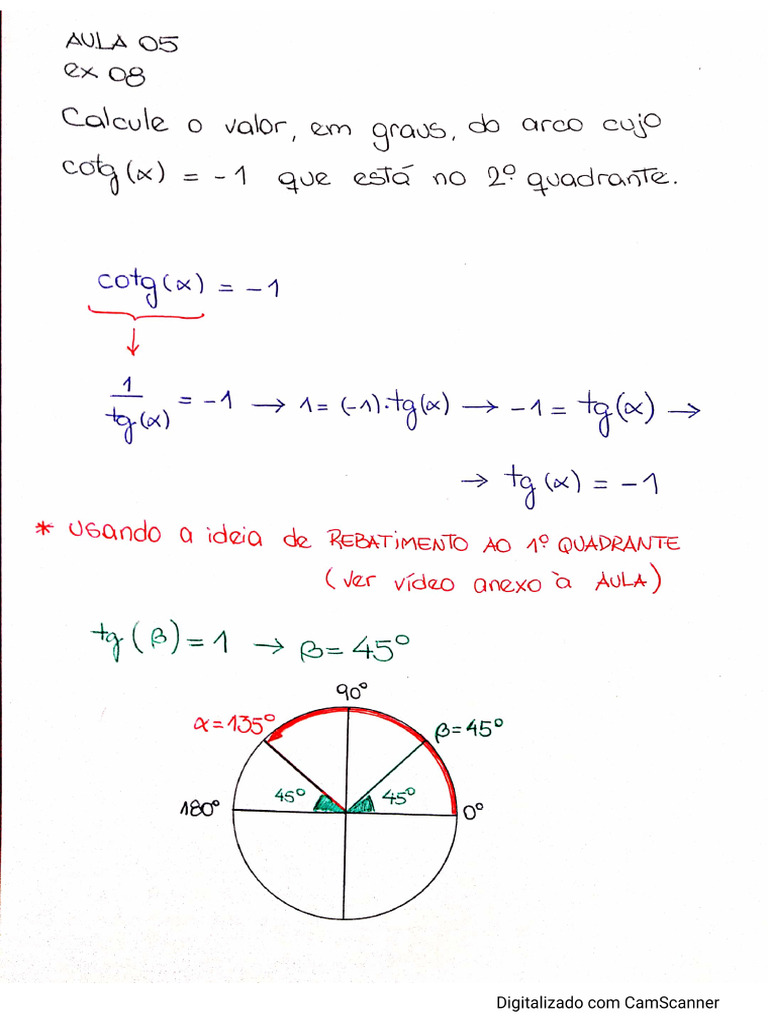 AULA 05
ex 08
Calcule o valor, em graus, do arco cujo
cotg(α) = -1 que está no 2º quadrante.
cotg(α) = -1
1/tg(α) = -1 → 1 = (-1).tg(α) → -1 = tg(α) →
→ tg(α) = -1
* USANDO A ideia de REBATIMENTO AO 1º QUADRANTE
(ver vídeo anexo à AULA)
tg(β) = 1 → β = 45º
90º
α = 135º
β = 45º
45º
45º
180º
0º
Digitalizado com CamScanner